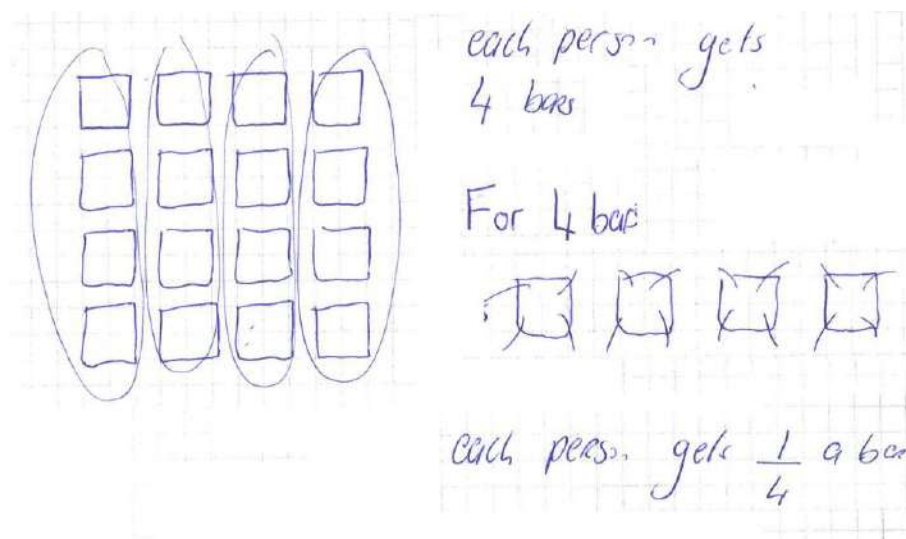 each person gets
4 bars
For 4 bar
each person gets 1/4 a bar